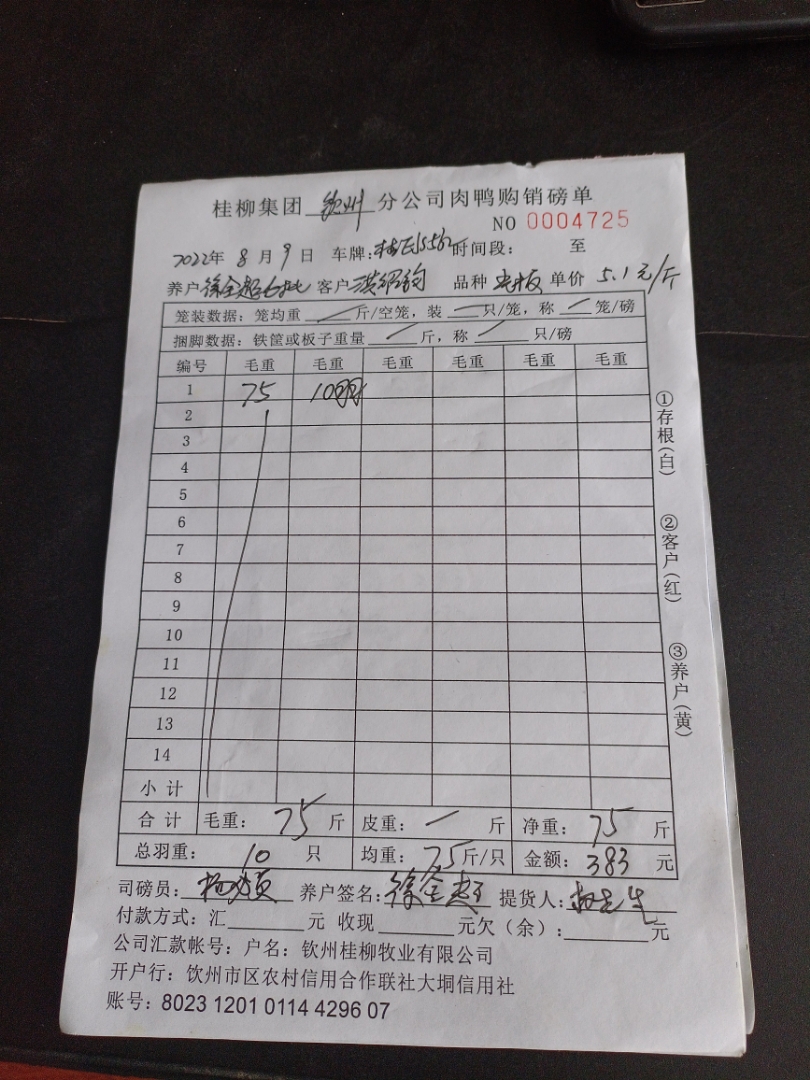 桂柳集团 钦州 分公司肉鸭购销磅单
NO 0004725
2022年 8月 9日 车牌: 时间段: 至
养户 徐全超 客户 品种 单价 5.1元/斤
笼装数据: 笼均重 斤/空笼, 装 只/笼, 称 笼/磅
捆脚数据: 铁筐或板子重量 斤, 称 只/磅
编号 毛重 毛重 毛重 毛重 毛重 毛重
1 75 10羽
2
3
4
5
6
7
8
9
10
11
12
13
14
小计
合计 毛重: 75 斤 皮重: 斤 净重: 75 斤
总羽重: 10 只 均重: 7.5 斤/只 金额: 383 元
司磅员: 养户签名: 徐全超 提货人:
付款方式: 汇 元 收现 元欠(余): 元
公司汇款帐号: 户名: 钦州桂柳牧业有限公司
开户行: 钦州市区农村信用合作联社大垌信用社
账号: 8023 1201 0114 4296 07
①存根(白)
②客户(红)
③养户(黄)